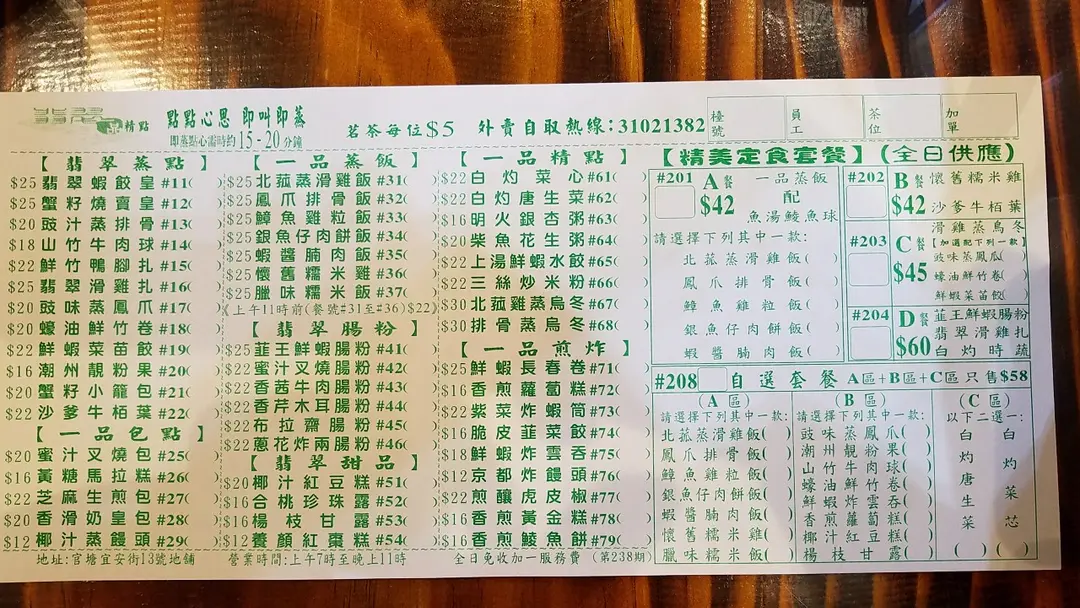 翡翠精點
點點心思 即叫即蒸
即蒸點心需時約15-20分鐘
茗茶每位$5
外賣自取熱線:31021382
檯號
員工
茶位
加單
【翡翠蒸點】
$25翡翠蝦餃皇#11( )
$25蟹籽燒賣皇#12( )
$20豉汁蒸排骨#13( )
$18山竹牛肉球#14( )
$22鮮竹鴨腳扎#15( )
$25翡翠滑雞扎#16( )
$20豉味蒸鳳爪#17( )
$20蠔油鮮竹卷#18( )
$22鮮蝦菜苗餃#19( )
$16潮州靚粉果#20( )
$20蟹籽小籠包#21( )
$22沙爹牛栢葉#22( )
【一品包點】
$20蜜汁叉燒包#25( )
$16黃糖馬拉糕#26( )
$22芝麻生煎包#27( )
$20香滑奶皇包#28( )
$12椰汁蒸饅頭#29( )
【一品蒸飯】
$25北菰蒸滑雞飯#31( )
$25鳳爪排骨飯#32( )
$25鱆魚雞粒飯#33( )
$25銀魚仔肉餅飯#34( )
$25蝦醬腩肉飯#35( )
$25懷舊糯米雞#36( )
$25臘味糯米飯#37( )
(上午11時前(餐號#31至#36)$22)
【翡翠腸粉】
$25韮王鮮蝦腸粉#41( )
$22蜜汁叉燒腸粉#42( )
$22香茜牛肉腸粉#43( )
$22香芹木耳腸粉#44( )
$22布拉齋腸粉#45( )
$22蔥花炸兩腸粉#46( )
【翡翠甜品】
$20椰汁紅豆糕#51( )
$16合桃珍珠露#52( )
$16楊枝甘露#53( )
$12養顏紅棗糕#54( )
【一品精點】
$22白灼菜心#61( )
$22白灼唐生菜#62( )
$16明火銀杏粥#63( )
$20柴魚花生粥#64( )
$22上湯鮮蝦水餃#65( )
$22三絲炒米粉#66( )
$30北菰雞蒸烏冬#67( )
$30排骨蒸烏冬#68( )
【一品煎炸】
$25鮮蝦長春卷#71( )
$16香煎蘿蔔糕#72( )
$22紫菜炸蝦筒#73( )
$16脆皮韮菜餃#74( )
$18鮮蝦炸雲吞#75( )
$12京都炸饅頭#76( )
$22煎釀虎皮椒#77( )
$16香煎黃金糕#78( )
$16香煎鯪魚餅#79( )
【精美定食套餐】(全日供應)
#201 A餐 $42
一品蒸飯
配
魚湯鯪魚球
請選擇下列其中一款:
北菰蒸滑雞飯( )
鳳爪排骨飯( )
鱆魚雞粒飯( )
銀魚仔肉餅飯( )
蝦醬腩肉飯( )
#202 B餐 $42
懷舊糯米雞
沙爹牛栢葉
#203 C餐 $45
滑雞蒸烏冬
【加選配下列一款】
豉味蒸鳳爪( )
蠔油鮮竹卷( )
鮮蝦菜苗餃( )
#204 D餐 $60
韮王鮮蝦腸粉
翡翠滑雞扎
白灼時蔬
#208 自選套餐 A區+B區+C區只售$58
(A區)
請選擇下列其中一款:
北菰蒸滑雞飯( )
鳳爪排骨飯( )
鱆魚雞粒飯( )
銀魚仔肉餅飯( )
蝦醬腩肉飯( )
懷舊糯米雞( )
臘味糯米飯( )
(B區)
請選擇下列其中一款:
豉味蒸鳳爪( )
潮州靚粉果( )
山竹牛肉球( )
蠔油鮮竹卷( )
鮮蝦炸雲吞( )
香煎蘿蔔糕( )
椰汁紅豆糕( )
楊枝甘露( )
(C區)
以下二選一:
白灼唐生菜( )
白灼菜芯( )
地址:官塘宜安街13號地舖
營業時間:上午7時至晚上11時
全日免收加一服務費
(第238期)